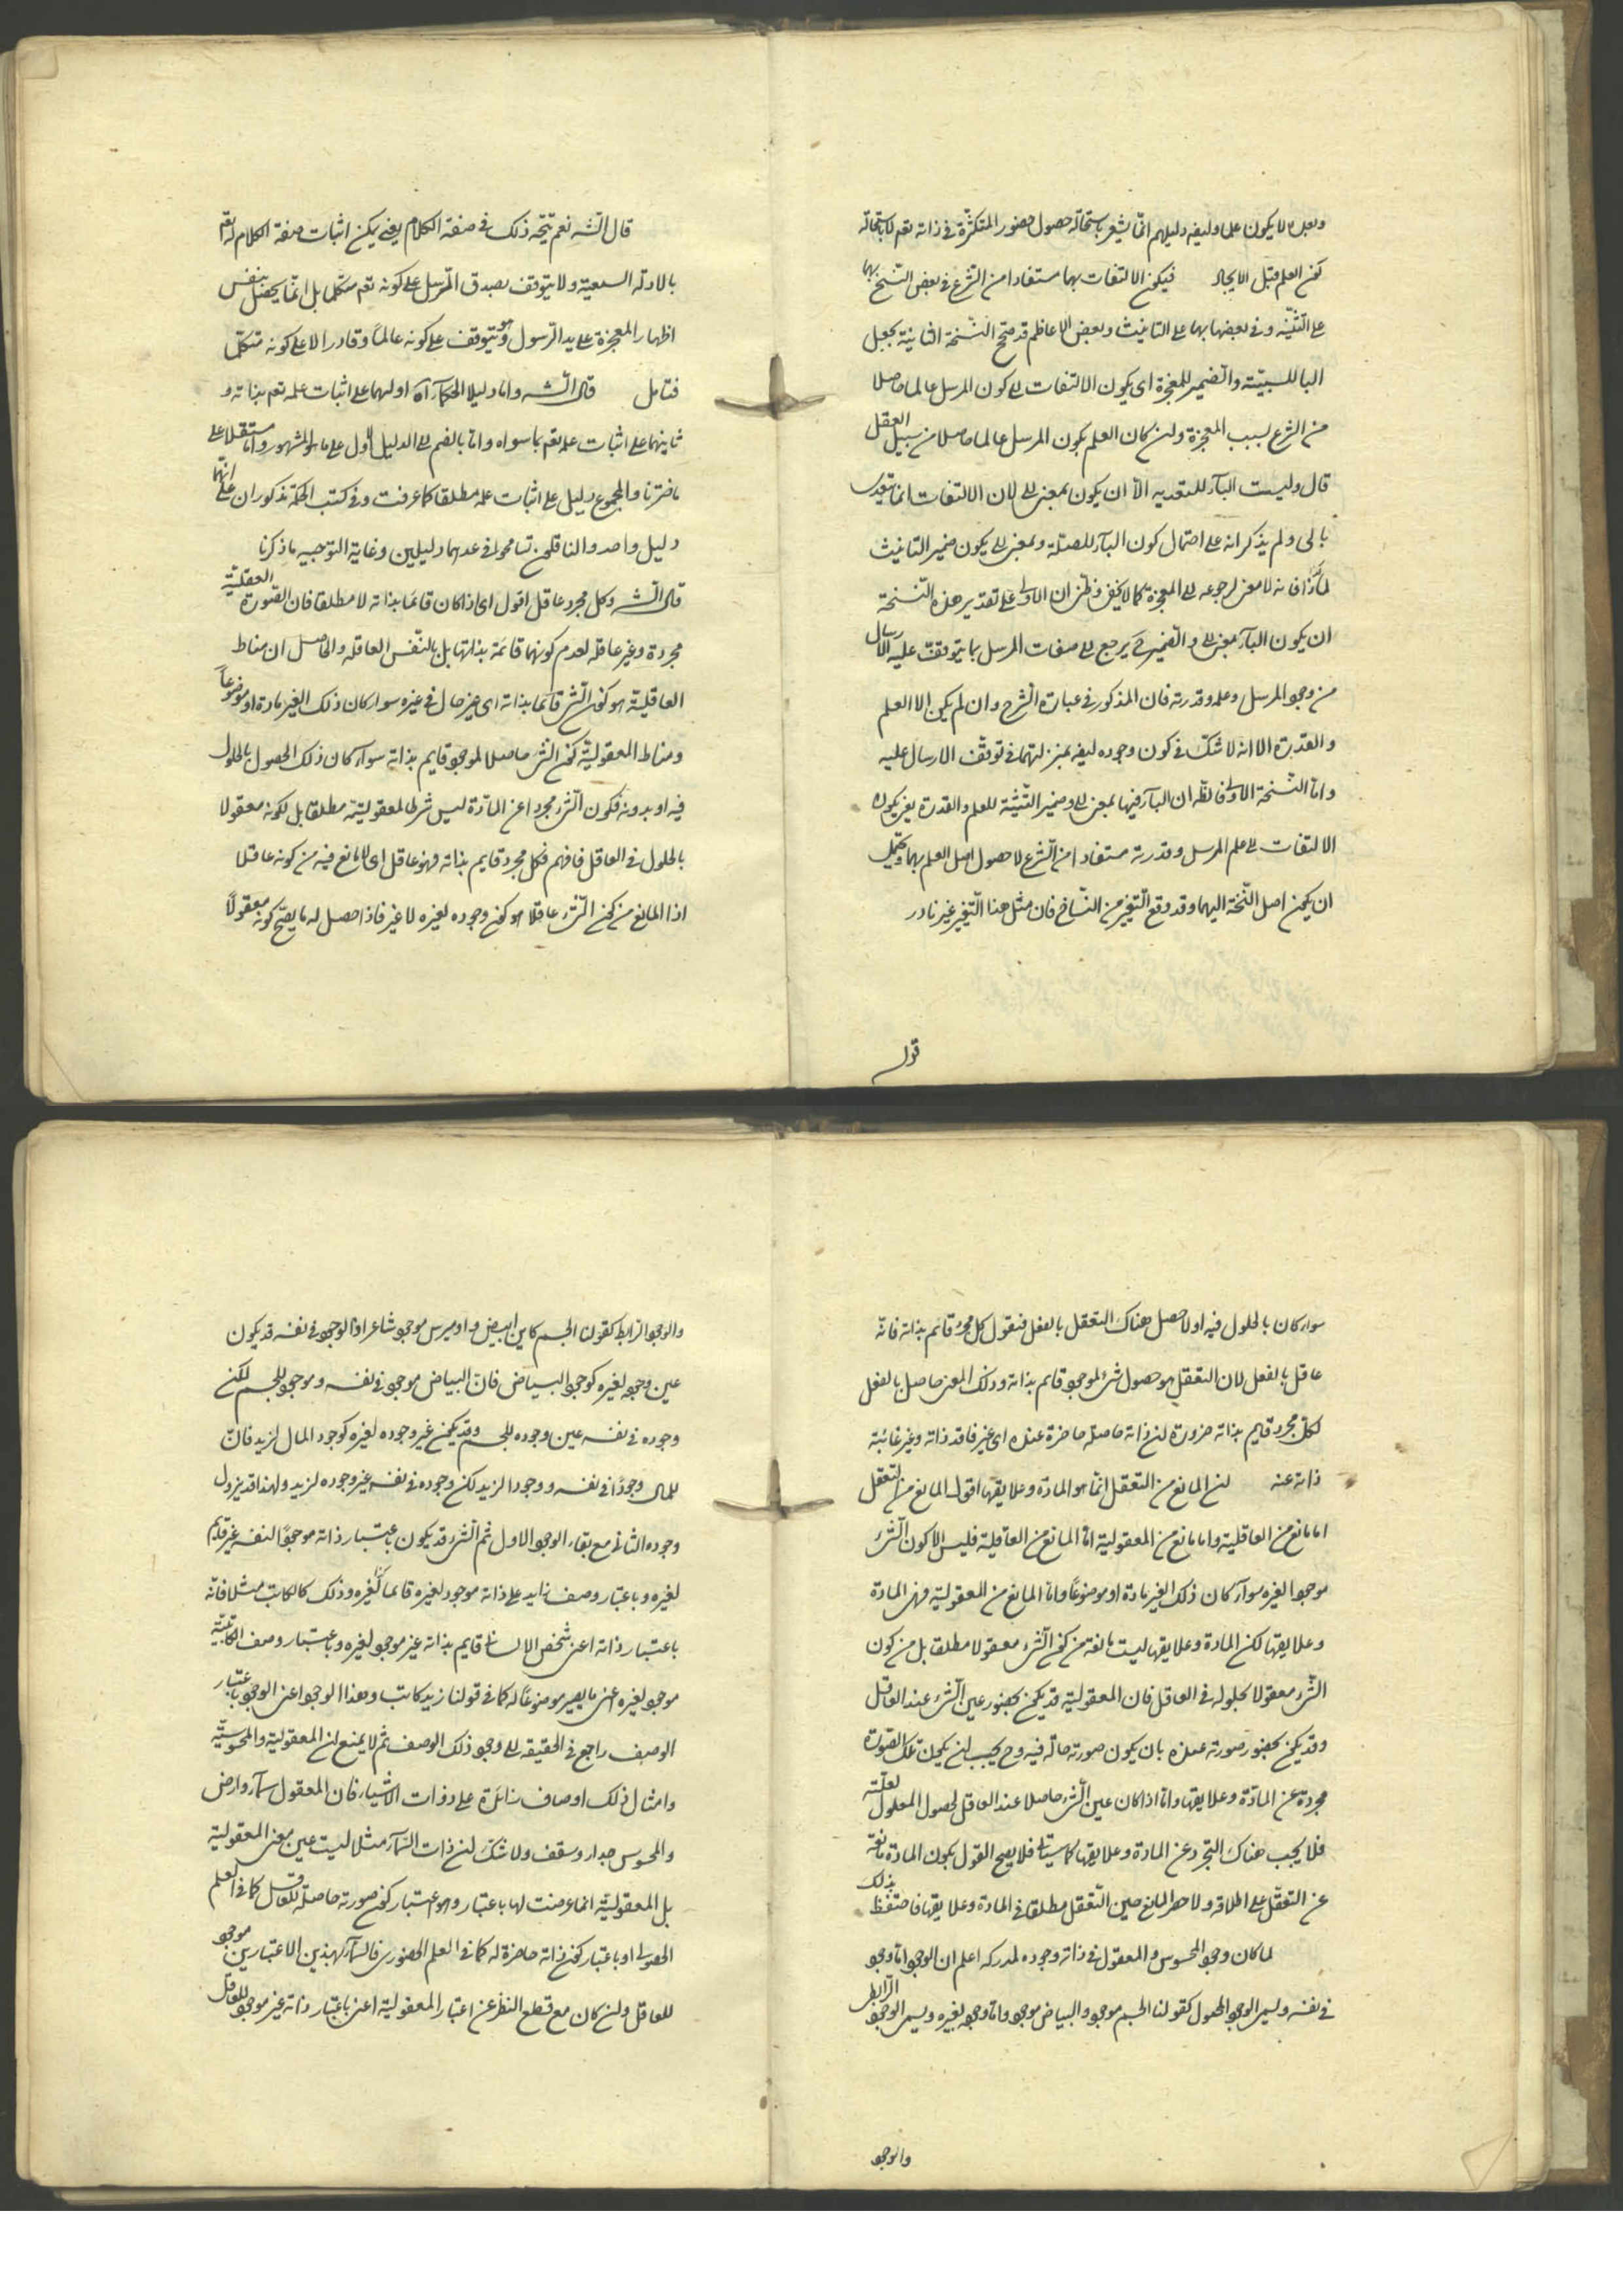 وبعبدلا يكون علما وليفه دليلهم انما يشعر باستحالة حصول حضور المتكثرة في ذاته تعم لا باستحالة
كون العلم قبل الايجاد فيكون الالتفات بهما مستفادا من الشرع في بعض النسخ بهما
على التثنية وفي بعضها بها على التانيث وبعض الاعاظم قد صحح النسخة الثانية بجعل
البا للسببية والضمير للمعجزة اى يكون الالتفات الى كون المرسل عالما حاصلا
من الشرع بسبب المعجزة وان كان العلم بكون المرسل عالما حاصلا من سبيل العقل
قال وليست الباء للتعدية الا ان يكون بمعنى الى لان الالتفات انما يتعدى
بالى ولم يذكر انه على احتمال كون الباء للصلة وبمعنى الى يكون ضمير التانيث
لماذا فانه لا معنى لرجوعه الى المعجزة كما لا يخفى وظن ان الاولى على تقدير هذه النسخة
ان يكون الباء بمعنى الى والضمير يرجع الى صفات المرسل مما يتوقف عليه الارسال
من وجود المرسل وعلمه وقدرته فان المذكور في عبارة الشرح وان لم يكن الا العلم
والقدرة الا انه لا شك في كون وجوده ليفه بمنزلتهما في توقف الارسال عليه
واما النسخة الاولى فالظ ان الباء فيها بمعنى الى وضمير التثنية للعلم والقدرة يعنى يكون
الالتفات الى علم المرسل وقدرته مستفادا من الشرع لا حصول اصل العلم بهما ويحتمل
ان يكون اصل النسخة اليهما وقد وقع التغيير من النساخ فان مثل هذا التغيير غير نادر
قول
قال الشه نعم يتجه ذلك في صفة الكلام يعنى يمكن اثبات صفة الكلام له تعم
بالادلة السمعية ولا يتوقف بصدق المرسل على كونه تعم متكلما بل انما يحصل بنفس
اظهار المعجزة على يد الرسول وهو يتوقف على كونه عالما وقادرا لا على كونه متكلما
فتامل قال الشه واما دليلا الحكماء اه اولهما على اثبات علمه تعم بذاته و
ثانيهما على اثبات علمه تعم بما سواه واما بالضم الى الدليل الاول على ما هو المشهور واما مستقلا على
ما ضرنا والمجموع دليل على اثبات علمه مطلقا كما عرفت وفي كتب الحكمة مذكوران على انهما
دليل واحد والناقلون تسامحوا في عدهما دليلين وغاية التوجيه ما ذكرنا
قال الشه وكل مجرد عاقل اقول اى اذا كان قائما بذاته لا مطلقا فان الصورة العقلية
مجردة وغير عاقلة لعدم كونها قائمة بذاتها بل بالنفس العاقلة والحاصل ان مناط
العاقلية هو كون الشئ قائما بذاته اى غير حال في غيره سواء كان ذلك الغير مادة او موضوعا
ومناط المعقولية كون الشئ حاصلا لموجود قايم بذاته سواء كان ذلك الحصول بالحلول
فيه او بدونه فكون الشئ مجردا عن المادة ليس شرطا لمعقوليته مطلقا بل لكونه معقولا
بالحلول في العاقل فافهم فكل مجرد قايم بذاته فهو عاقل اى لا مانع فيه من كونه عاقلا
اذا المانع من كون الشئ عاقلا هو كون وجوده لغيره لا غير فاذا حصل له ما يصح كونه معقولا
سواء كان بالحلول فيه او لا حصل هناك التعقل بالفعل فنقول كل مجرد قائم بذاته فانه
عاقل بالفعل لان التعقل هو حصول شئ لموجود قايم بذاته وذلك المعنى حاصل بالفعل
لكل مجرد قايم بذاته ضرورة ان ذاته حاصلة حاضرة عنده اى غير فاقد ذاته وغير غائبة
ذاته عنه لان المانع من التعقل انما هو المادة وعلايقها اقول المانع من التعقل
اما مانع من العاقلية واما مانع من المعقولية اما المانع من العاقلية فليس الا كون الشئ
موجودا لغيره سواء كان ذلك الغير مادة او موضوعا واما المانع من المعقولية فهى المادة
وعلايقها لكن المادة وعلايقها ليست مانعة من كون الشئ معقولا مطلقا بل من كون
الشئ معقولا بحلوله في العاقل فان المعقولية قد يكون بحضور عين الشئ عند العاقل
وقد يكون بحضور صورته عنده بان يكون صورته حالة فيه وح يجب ان يكون تلك الصورة
مجردة عن المادة وعلايقها واما اذا كان عين الشئ حاصلا عند العاقل لحصول المعلول لعلته
فلا يجب هناك التجرد عن المادة وعلايقها كما سياتى فلا يصح القول بكون المادة مانعة
عن التعقل على اطلاقه ولا حصر المانع عن التعقل مطلقا في المادة وعلايقها فاحتفظ بذلك
لما كان وجود المحسوس والمعقول في ذاته وجوده لمدركه اعلم ان الوجود اما وجود
في نفسه ويسمى الوجود المحمول كقولنا الجسم موجود والبياض موجود واما وجود لغيره ويسمى الوجود الرابطى
والوجود
والوجود الرابط كقولنا الجسم كاين ابيض واوميرس موجود شاعرا والوجود في نفسه قد يكون
عين وجوده لغيره كوجود البياض فان البياض موجود في نفسه وموجود للجسم لكن
وجوده في نفسه عين وجوده للجسم وقد يكون غير وجوده لغيره كوجود المال لزيد فان
للمال وجودا في نفسه ووجودا لزيد لكن وجوده في نفسه غير وجوده لزيد ولهذا قد يزول
وجوده الثاني مع بقاء الوجود الاول ثم الشئ قد يكون باعتبار ذاته موجودا لنفسه غير قايم
لغيره وباعتبار وصف زايد على ذاته موجود لغيره قائما لغيره وذلك كالكاتب مثلا فانه
باعتبار ذاته اعنى شخص الانسان قايم بذاته غير موجود لغيره وباعتبار وصف الكاتبية
موجود لغيره اعنى ما يصير موضوعا له كما في قولنا زيد كاتب وهذا الوجود اعنى الوجود باعتبار
الوصف راجع في الحقيقة الى وجود ذلك الوصف ثم لا يمنع ان المعقولية والمحسوسية
وامثال ذلك اوصاف زائدة على ذوات الاشياء فان المعقول سماء وارض
والمحسوس جدار وسقف ولا شك ان ذات السماء مثلا ليست عين معنى المعقولية
بل المعقولية انما عرضت لها باعتبار وهو اعتبار كون صورته حاصلة للعاقل كما في العلم
الحصولى او باعتبار كون ذاته حاضرة له كما في العلم الحضورى فالسماء بهذين الاعتبارين موجود
للعاقل وان كان مع قطع النظر عن اعتبار المعقولية اعنى باعتبار ذاته غير موجود للعاقل